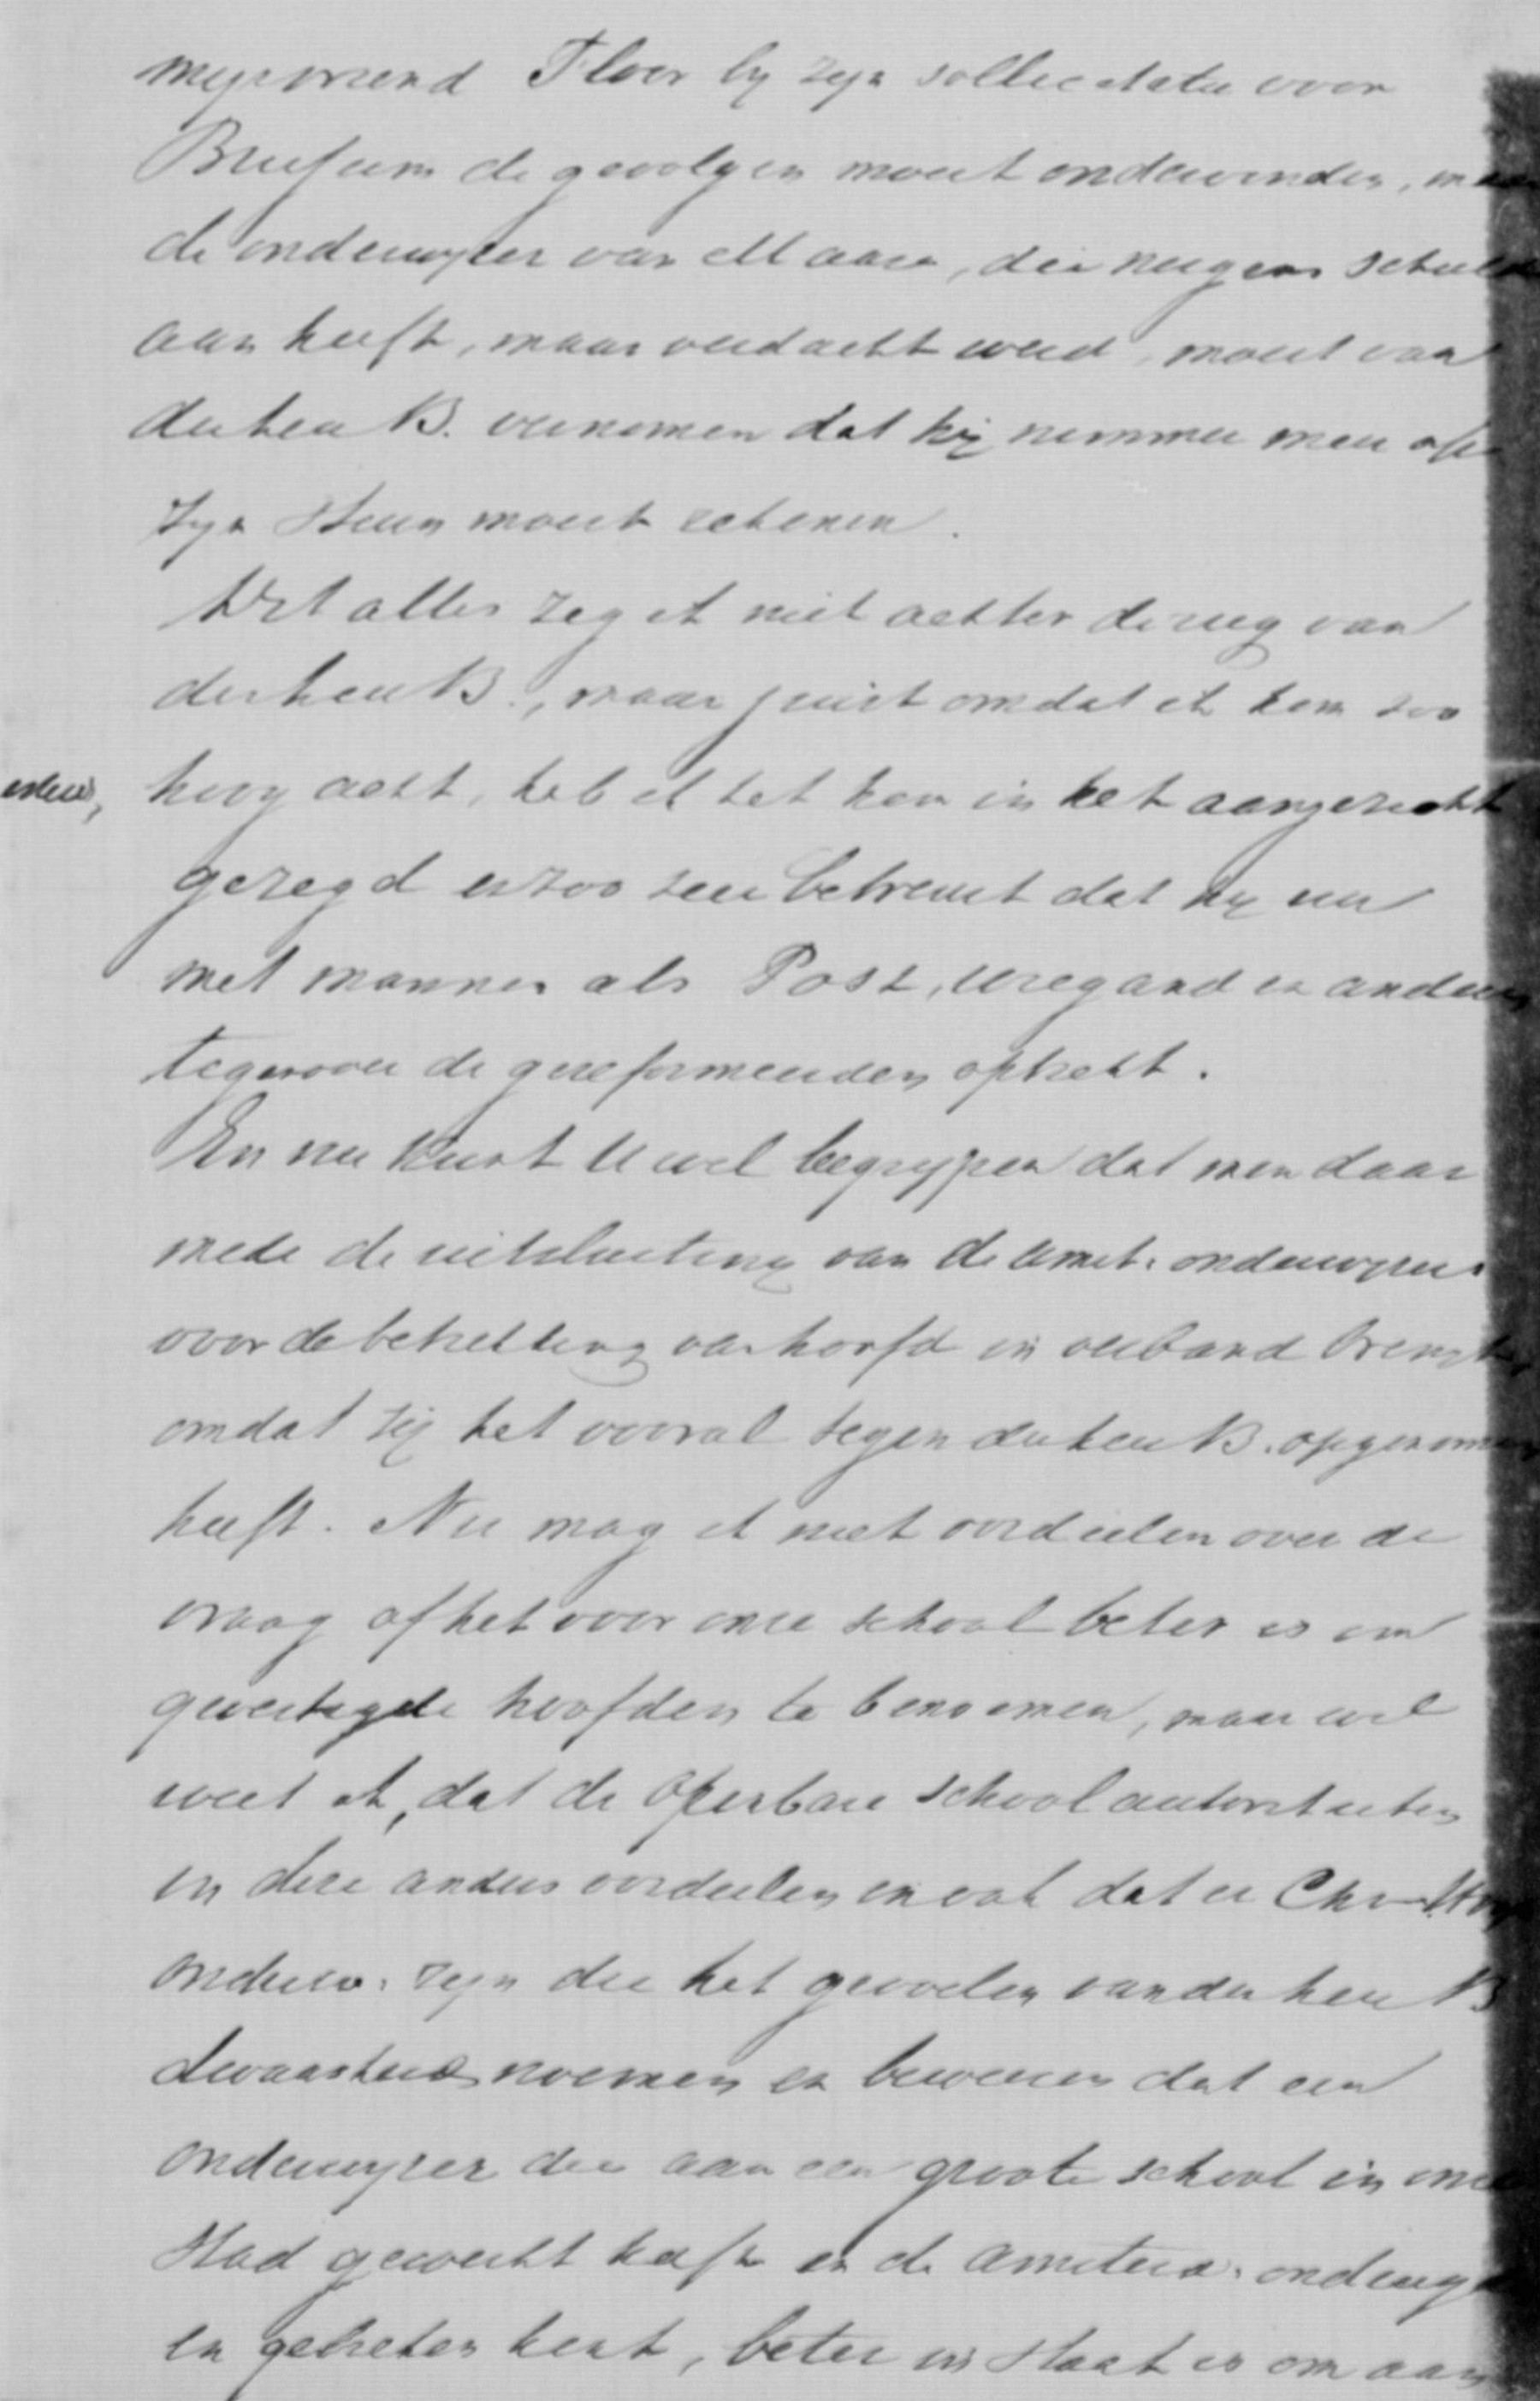 mijn vriend Floor by zijn sollicitatie voor
de gevolgen moest ondervinden,
de onderwyzer van Maare, die nergens schuld
aan heeft, maar verdacht werd, moest van
den heer B. vernemen dat hij nimmer meer op
zyn steun moest rekenen.
Dit alles zeg ik niet achter de rug van
den heer B., maar juist omdat ik hem zoo
hoog acht, heb ik het hem in het aangezicht
gezegd en zoo zeer betreurt dat hy nu
met mannen als Post, Wiegand en anderen
tegenover de gereformeerden optrekt.
En nu kunt U wel begrypen dat men daar
mede de uitsluiting van de Amst. onderwyzers
voor de betrekking van hoofd in verband brengt,
omdat hij het vooral tegen den heer B. opgenomen
heeft. Nu mag ik niet oordeelen over de
vraag of het voor onze school beter is om
gevestigde hoofden te benoemen, maar wel
weet ik, dat de openbare school autoriteiten
in deze anders oordeelen en ook dat er
onderw. zyn die het gevoelen van den heer B
dwaasheid noemen en beweren dat een
onderwyzer die aan een groote school in onze
stad gewerkt heeft en de Amsterd.
en gebreken kent, beter in staat is om aan